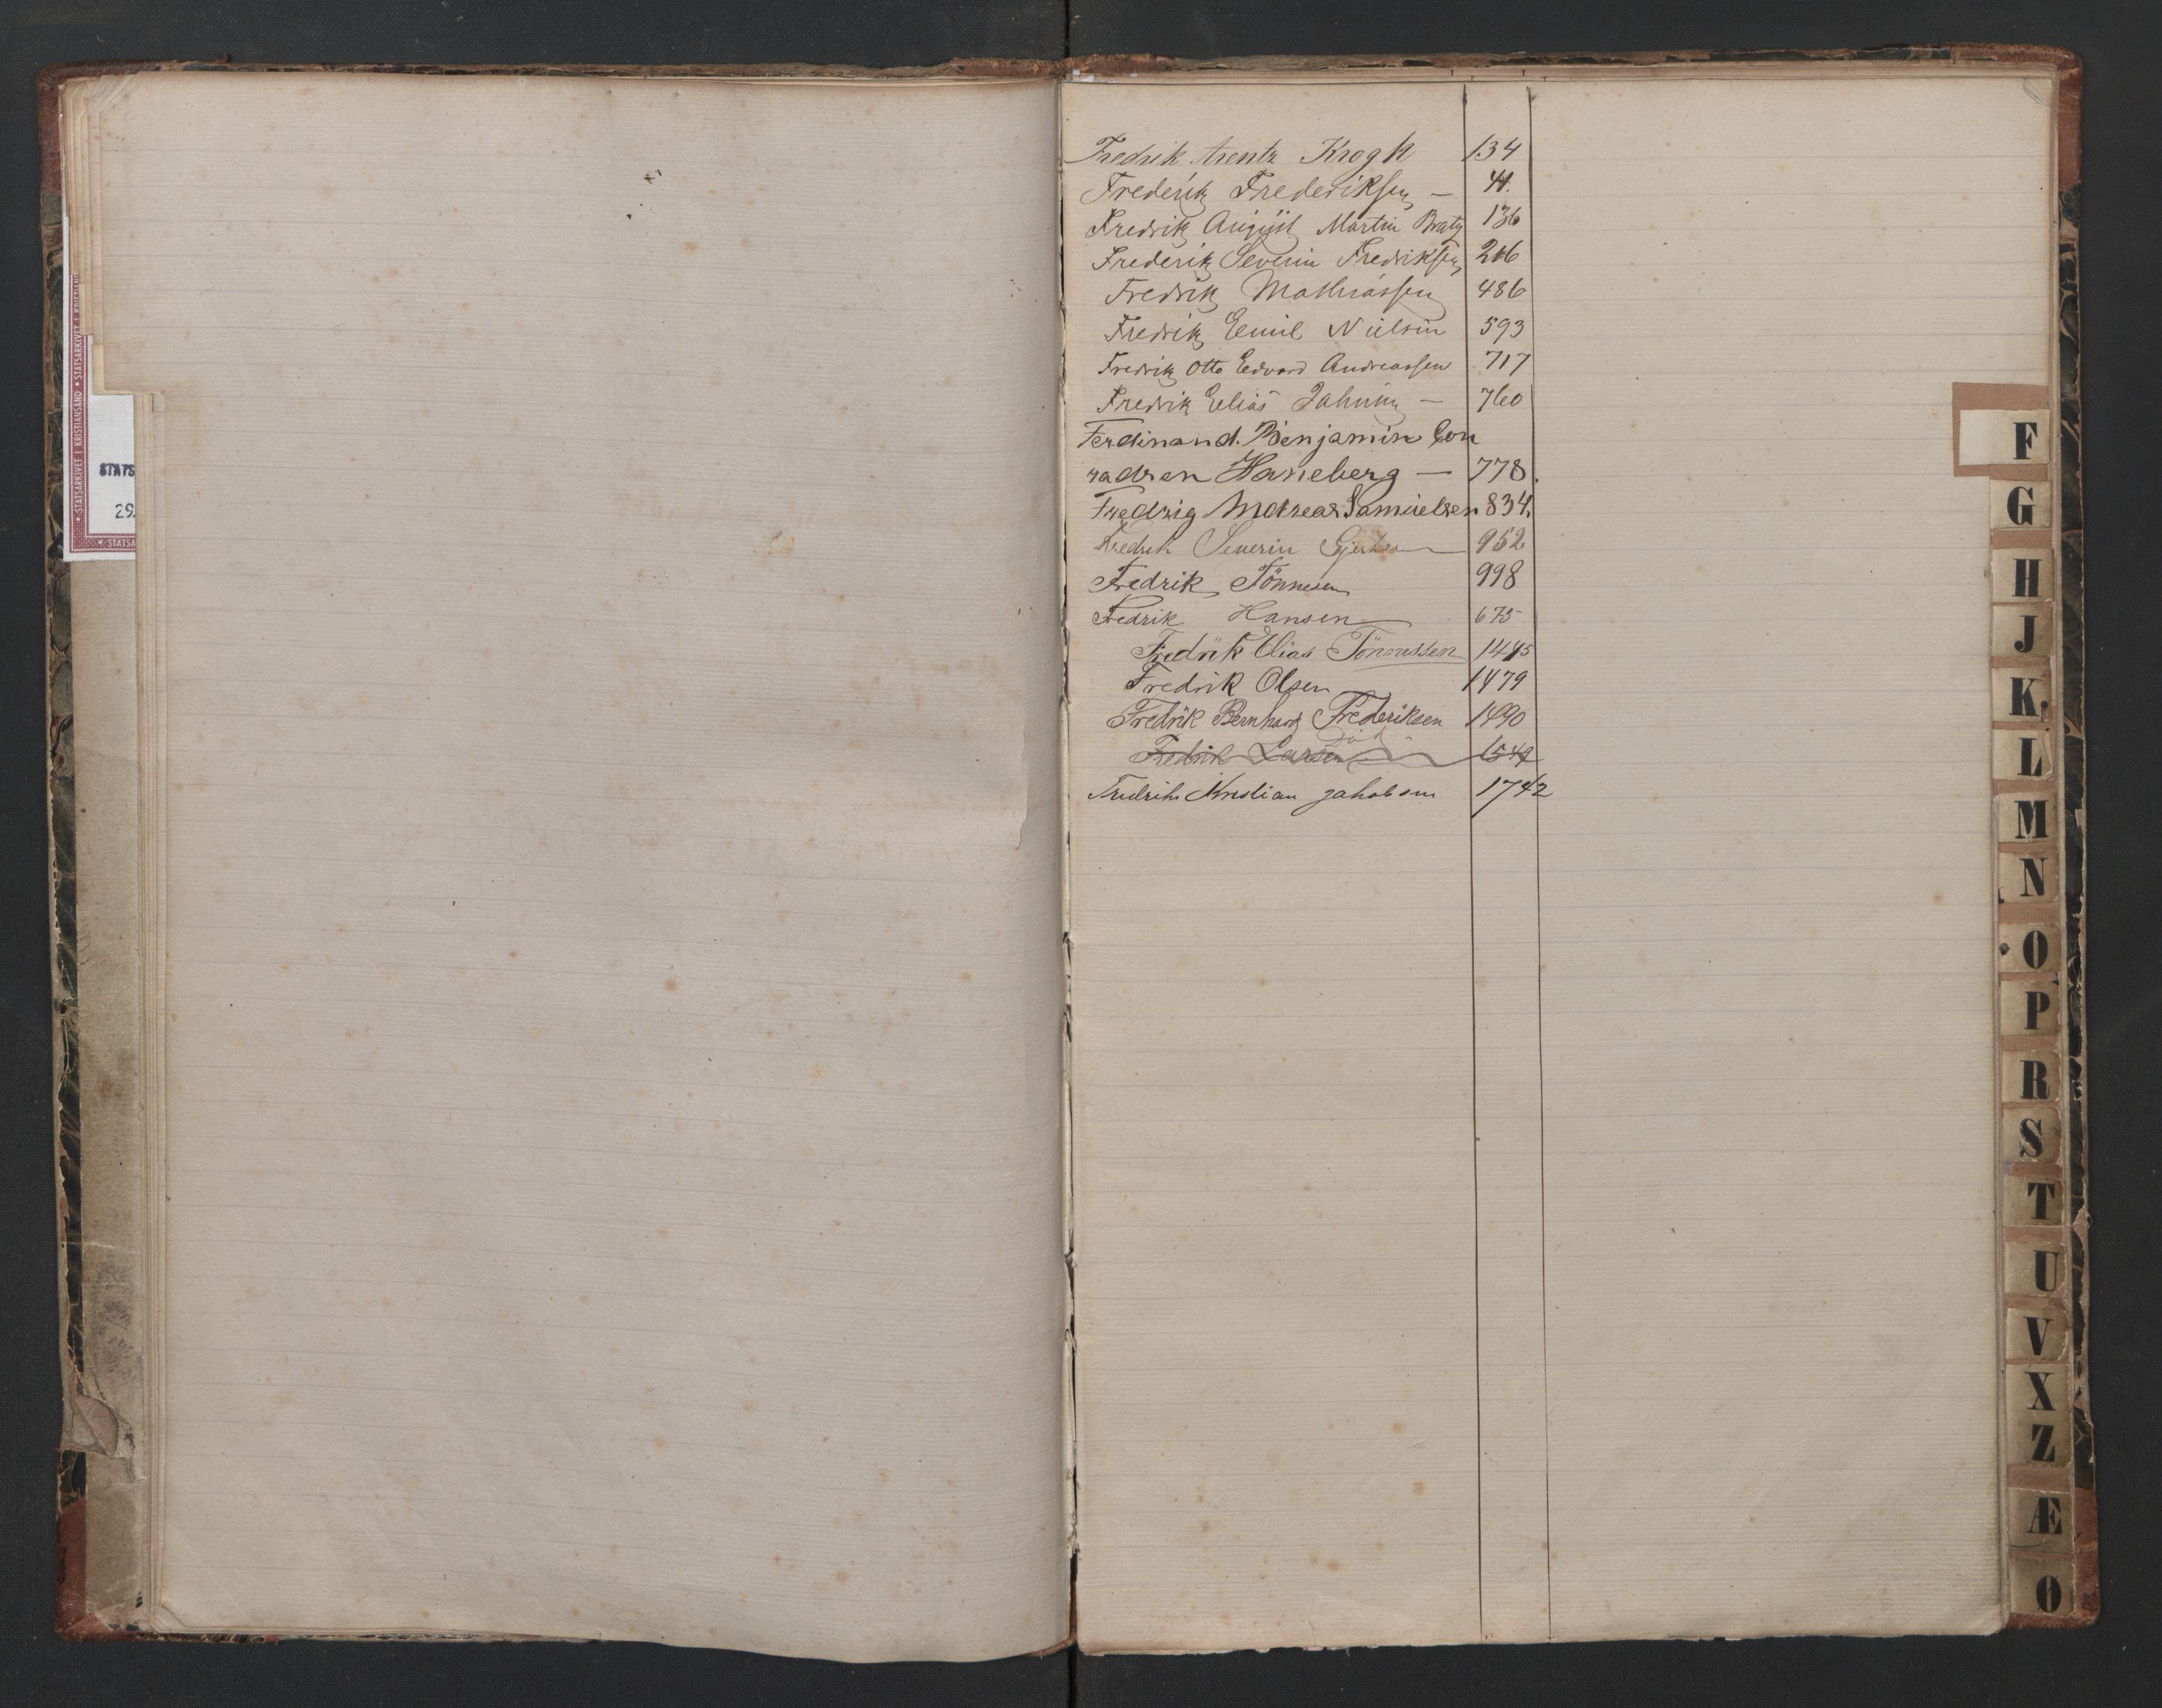 Fredrik Arentz Krogh 134
Frederik Frederiksen — 41.
Fredrik August Martin Bratz 136
Frederik Severin Fredriksen 216
Fredrik Mathiassen 486
Fredrik Emil Nielsen 593
Fredrik Otto Edvard Andreassen 717
Fredrik Elias — 760
Ferdinand. Benjamin Con
radsen Haneberg — 778.
Fredrig Andreas Samuelsen 834.
Fredrik Severin 952
Fredrik Tönnesen 998
Fredrik Hansen 675
Fredrik Elias Tönnessen 1445
Fredrik Olsen 1479
Fredrik Bernhard Frederiksen 1490
död
Fredrik Larsen 1549
Fredrik Kristian Jakobsen 1742
STATSARKIVET I KRISTIANSAND ★ STATSARKIVET I
STATS
29.
F
G
H
J
K
L
M
N
O
P
R
S
T
U
V
X
Z
Æ
Ø